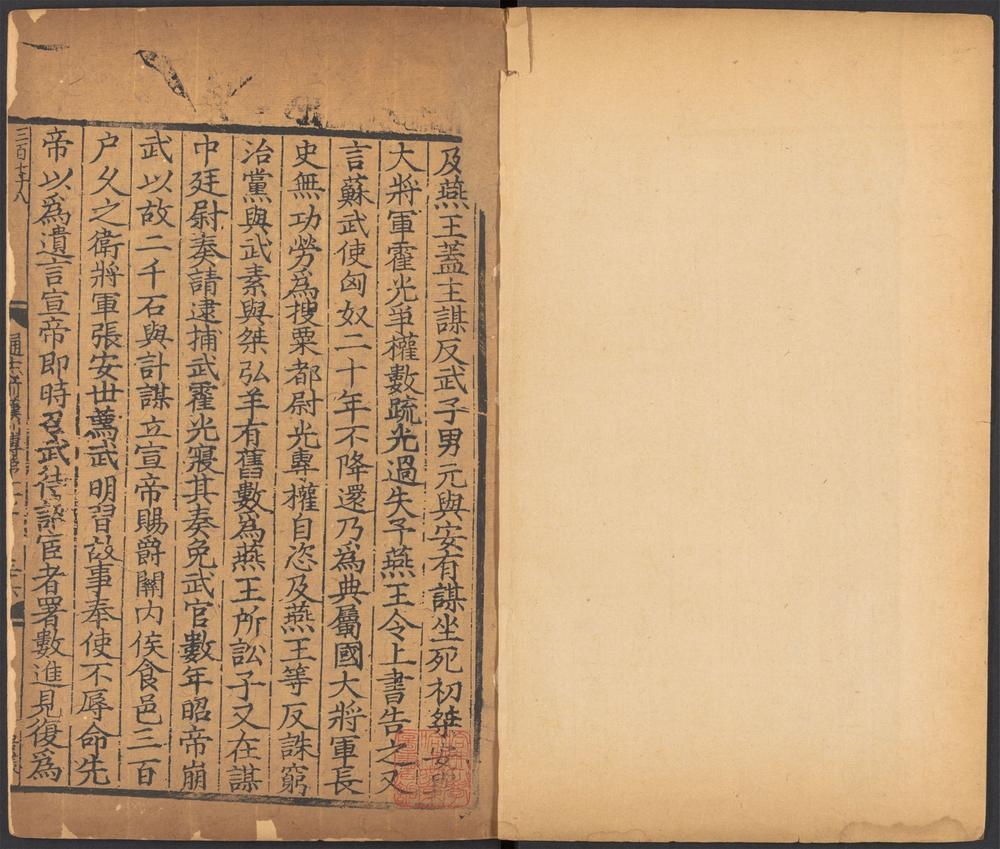 及燕王蓋主謀反武子男元與安有謀坐死初桀安與
大將軍霍光爭權數疏光過失予燕王令上書告之又
言蘇武使匈奴二十年不降還乃爲典屬國大將軍長
史無功勞爲搜粟都尉光專權自恣及燕王等反誅窮
治黨與武素與桀弘羊有舊數爲燕王所訟子又在謀
中廷尉奏請逮捕武霍光寢其奏免武官數年昭帝崩
武以故二千石與計謀立宣帝賜爵關內侯食邑三百
户久之衛將軍張安世薦武明習故事奉使不辱命先
帝以爲遺言宣帝即時召武待詔宦者署數進見復爲
三百七十八
通志前漢傳第十一